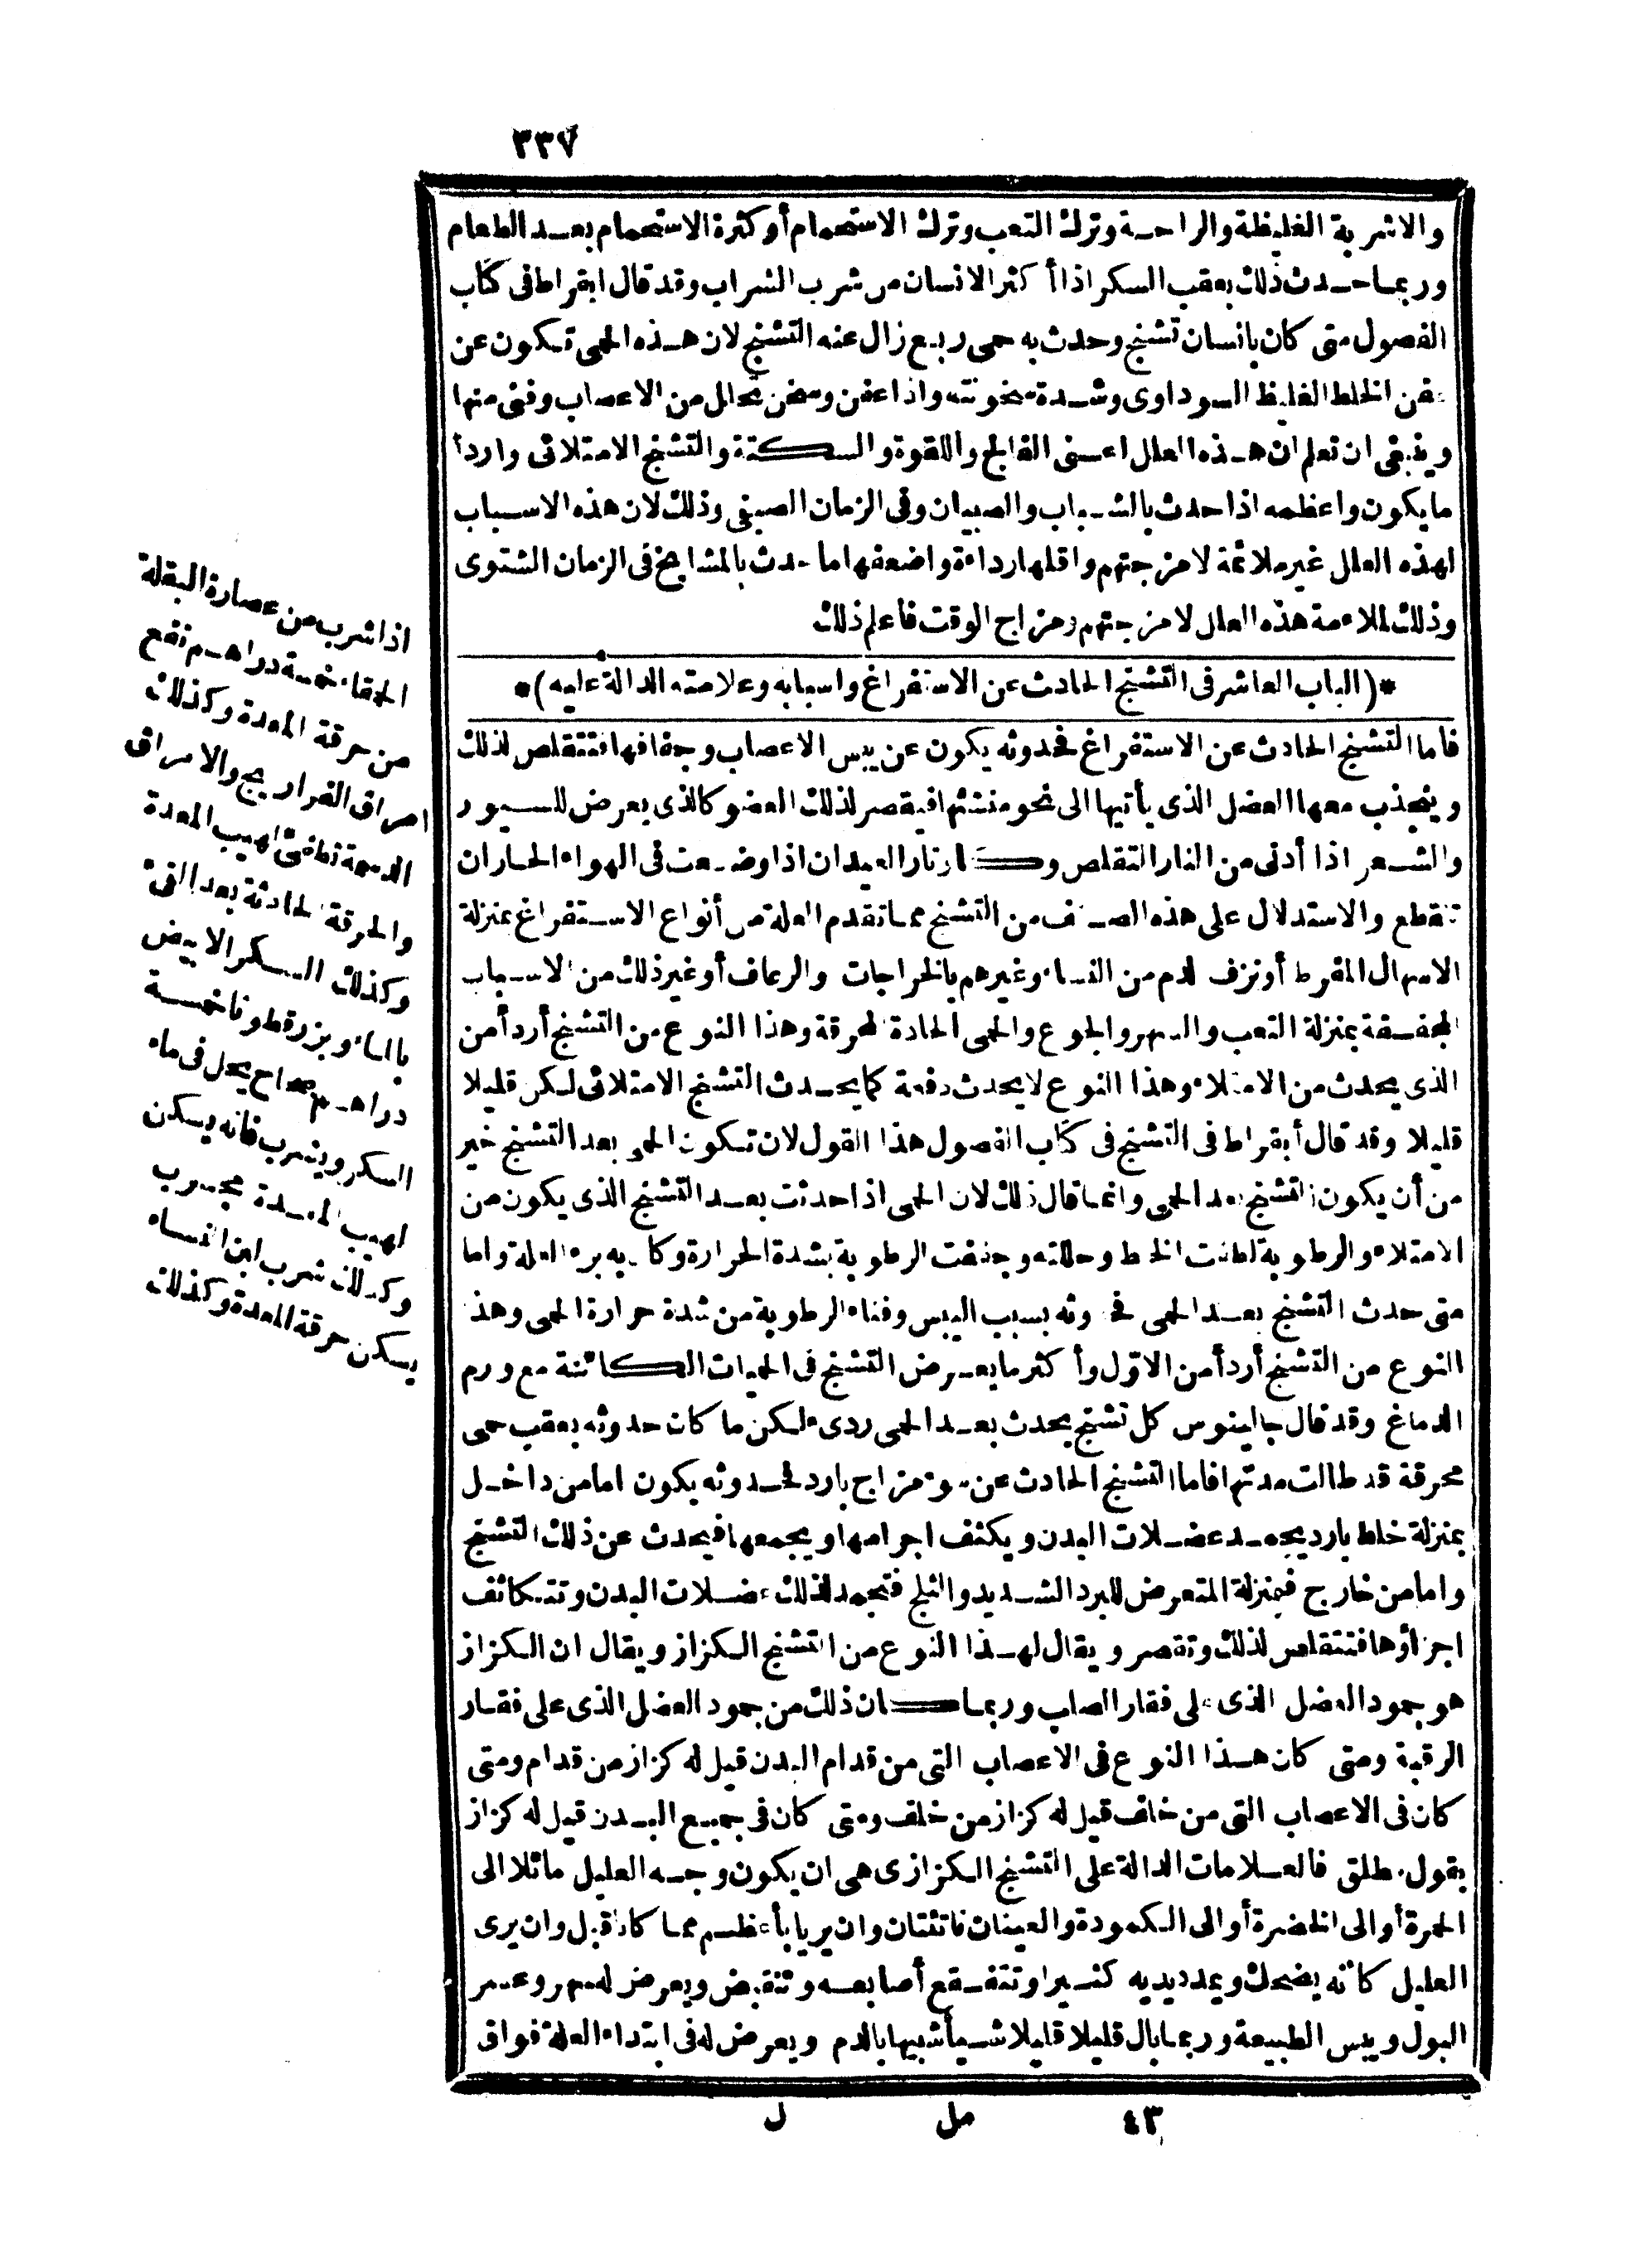 ٣٣٧
والاشربة الغليظة والراحة وترك التعب وترك الاستحمام أو كثرة الاستحمام بعد الطعام
وربما حدث ذلك بعقب السكر اذا أكثر الانسان من شرب الشراب وقد قال ابقراط فى كتاب
الفصول متى كان بانسان تشنج وحدث به حمى ربع زال عنه التشنج لان هذه الحمى تكون عن
عفن الخلط الغليظ السوداوى وشدة سخونته واذا عفن وسخن تحلل من الاعصاب وفنى منها
وينبغى ان تعلم ان هذه العلل اعنى الفالج واللقوة والسكتة والتشنج الامتلائى واردأ
ما يكون واعظمه اذا حدث بالشباب والصبيان وفى الزمان الصيفى وذلك لان هذه الاسباب
لهذه العلل غير ملائمة لامزجتهم واقلها رداءة واضعفها ما حدث بالمشايخ فى الزمان الشتوى
وذلك لملاءمة هذه العلل لامزجتهم ومزاج الوقت فاعلم ذلك
*(الباب العاشر فى التشنج الحادث عن الاستفراغ واسبابه وعلامته الدالة عليه)*
فاما التشنج الحادث عن الاستفراغ فحدوثه يكون عن يبس الاعصاب وجفافها فتتقلص لذلك
وينجذب معها العضل الذى يأتيها الى نحو منشئها فيقصر لذلك العضو كالذى يعرض للسيور
والشعر اذا أدنى من النار التقلص وكاوتار العيدان اذا وضعت فى الهواء الحار ان
تنقطع والاستدلال على هذه الصنف من التشنج مما تقدم العلة من أنواع الاستفراغ بمنزلة
الاسهال المفرط أو نزف الدم من النساء وغيرهم بالخراجات والرعاف أو غير ذلك من الاسباب
المجففة بمنزلة التعب والسهر والجوع والحمى الحادة المحرقة وهذا النوع من التشنج أردأ من
الذى يحدث من الامتلاء وهذا النوع لا يحدث دفعة كما يحدث التشنج الامتلائى لكن قليلا
قليلا وقد قال أبقراط فى التشنج فى كتاب الفصول هذا القول لان تكون الحمى بعد التشنج خير
من أن يكون التشنج بعد الحمى وانما قال ذلك لان الحمى اذا حدثت بعد التشنج الذى يكون من
الامتلاء والرطوبة لطفت الخلط وحللته وجففت الرطوبة بشدة الحرارة وكان به برء العلة واما
متى حدث التشنج بعد الحمى فحدوثه بسبب اليبس وفناء الرطوبة من شدة حرارة الحمى وهذا
النوع من التشنج أردأ من الاول وأكثر ما يعرض التشنج فى الحميات الكائنة مع ورم
الدماغ وقد قال جالينوس كل تشنج يحدث بعد الحمى ردىء لكن ما كان حدوثه بعقب حمى
محرقة قد طالت مدتها فاما التشنج الحادث عن سوء مزاج بارد فحدوثه يكون اما من داخل
بمنزلة خلط بارد يجمد عضلات البدن ويكثف اجرامها ويجمعها فيحدث عن ذلك التشنج
واما من خارج فبمنزلة المتعرض للبرد الشديد والثلج فتجمد لذلك عضلات البدن وتتكاثف
اجزاؤها فتتقلص لذلك وتقصر ويقال لهذا النوع من التشنج الكزاز ويقال ان الكزاز
هو جمود العضل الذى على فقار الصلب وربما كان ذلك من جمود العضل الذى على فقار
الرقبة ومتى كان هذا النوع فى الاعصاب التى من قدام البدن قيل له كزاز من قدام ومتى
كان فى الاعصاب التى من خلف قيل له كزاز من خلف ومتى كان فى جميع البدن قيل له كزاز
بقول مطلق فالعلامات الدالة على التشنج الكزازى هى ان يكون وجه العليل مائلا الى
الحمرة أو الى الخضرة أو الى الكمودة والعينان ناتئتان وان يريا بأعظم مما كانا قبل وان يرى
العليل كأنه يضحك ويمدد يديه كثيرا وتتفقع أصابعه وتنقبض ويعرض له سهر وعسر
البول ويبس الطبيعة وربما بال قليلا قليلا شيأ شبيها بالدم ويعرض له فى ابتداء العلة فواق
اذا شرب من عصارة البقلة
الحمقاء خمسة دراهم نفع
من حرقة المعدة وكذلك
امراق الفراريج والامراق
الدسمة تطفئ لهيب المعدة
والحرقة الحادثة بعد القئ
وكذلك السكر الابيض
بالماء وبزرقطونا خمسة
دراهم صحاح يحل فى ماء
السكر ويشرب فانه يسكن
لهيب المعدة مجرب
وكذلك شرب لبن النساء
يسكن حرقة المعدة وكذلك
٤٣ مل ل